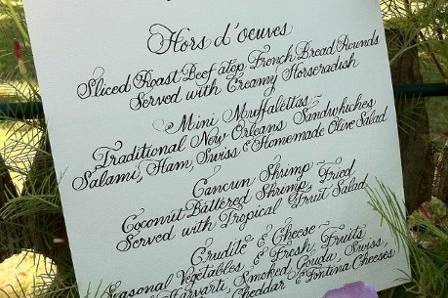 Hors d'oeuves
Sliced Roast Beef atop French Bread Rounds
Served with Creamy Horseradish
Mini Muffalettas ~
Traditional New Orleans Sandwhiches
Salami, Ham, Swiss & Homemade Olive Salad
Cancun Shrimp ~
Coconut Battered Shrimp Fried
Served with Tropical Fruit Salad
Crudité & Cheese ~
Seasonal Vegetables & Fresh Fruits
Havarti, Smoked Gouda, Swiss
Cheddar & Fontina Cheeses